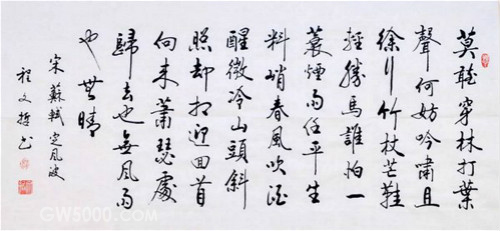 莫聽穿林打葉
聲何妨吟嘯且
徐行竹杖芒鞋
輕勝馬誰怕一
蓑煙雨任平生
料峭春風吹酒
醒微冷山頭斜
照却相迎回首
向來蕭瑟處
歸去也無風雨
也無晴
宋蘇軾定風波
程文书
GW5000.com